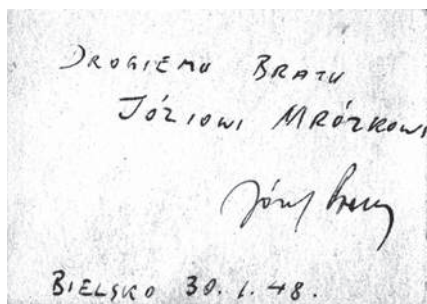 DROGIEMU BRATU
JÓZIOWI MRÓZKOWI
Józef
BIELSKO 30. 1. 48.